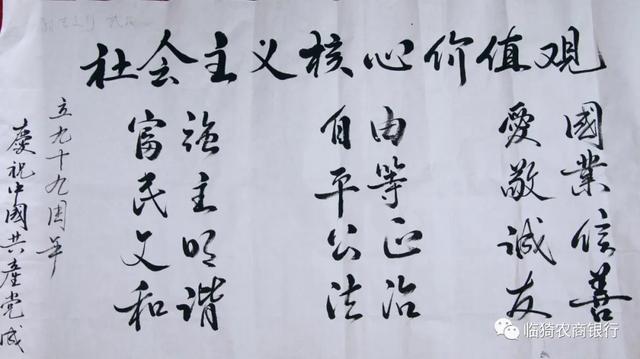 社会主义核心价值观
富強 自由 愛國
民主 平等 敬業
文明 公正 誠信
和谐 法治 友善
慶祝中國共產党成
立九十九周年
临猗农商银行